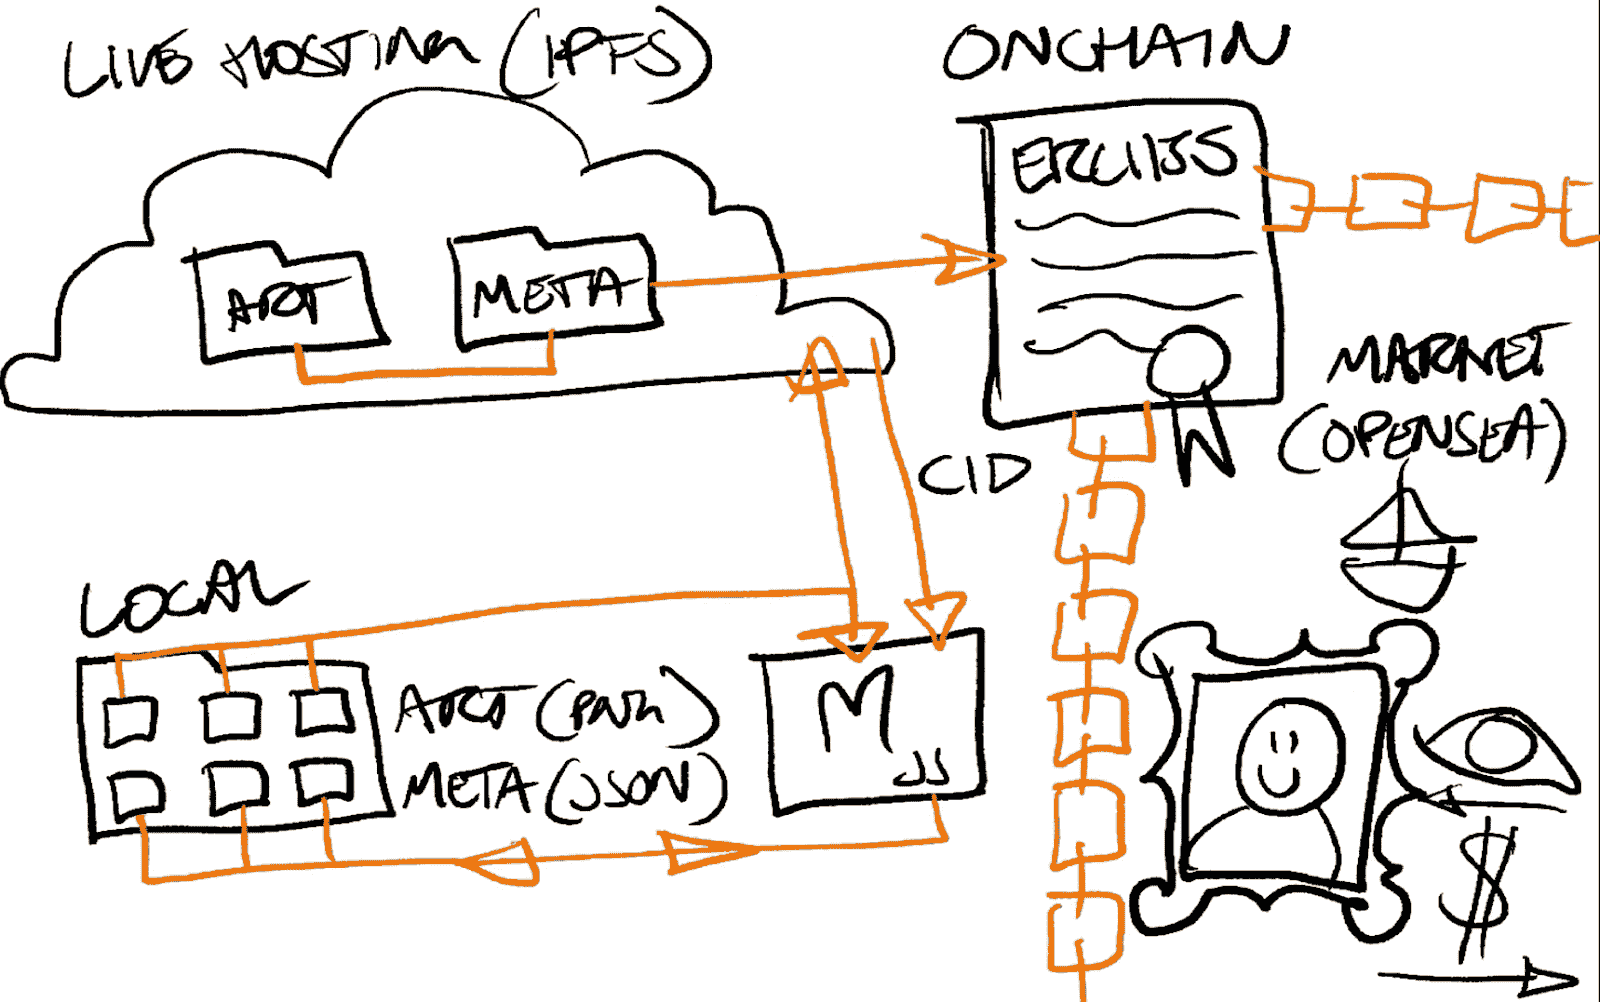 LIVE HOSTING (IPFS)
ONCHAIN
ERC1155
ART
META
MARKET
(OPENSEA)
CID
LOCAL
ART (PNG)
META (JSON)
M
JS
$